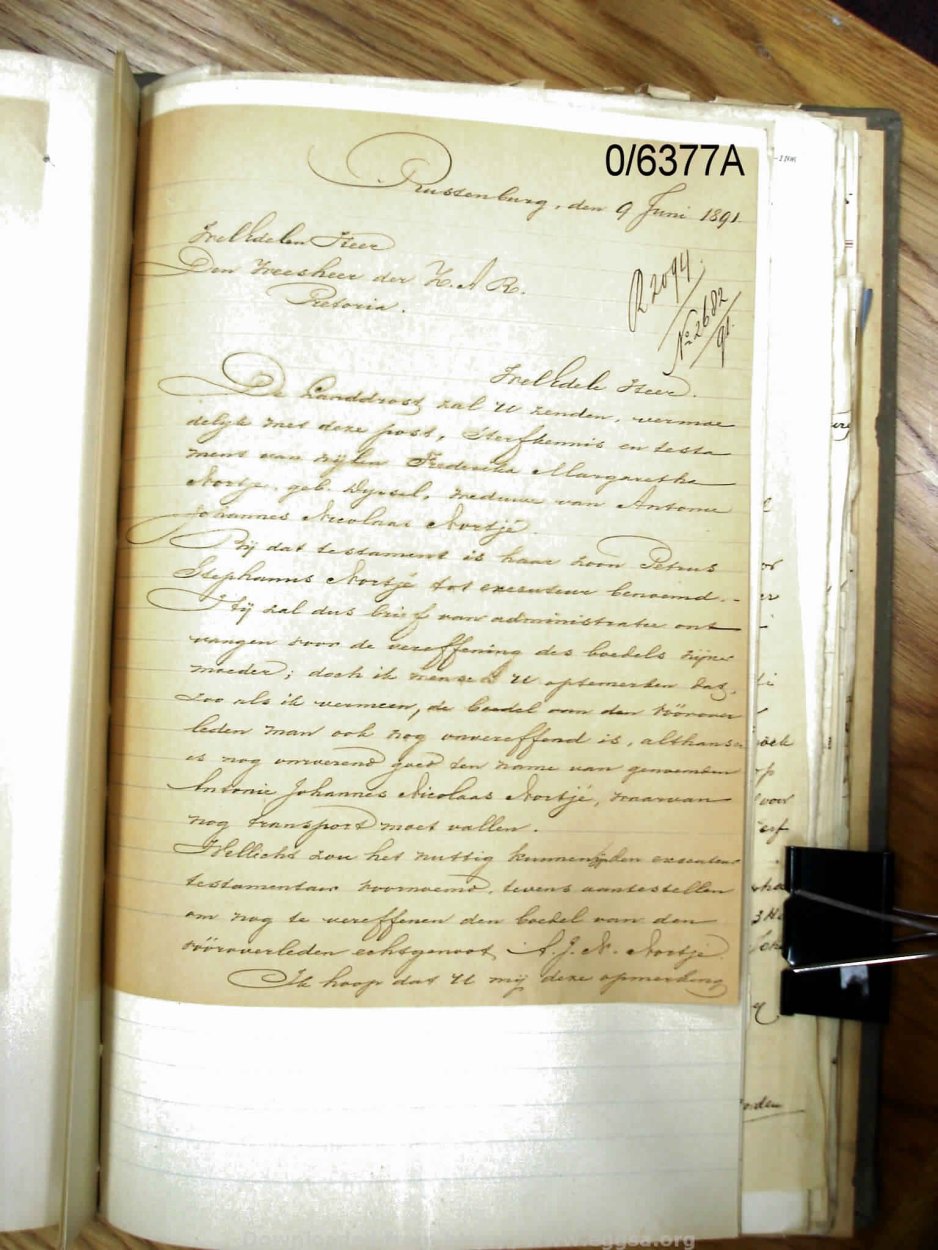 0/6377A
Rustenburg, den 9 Juni 1891
WelEdelen Heer
Den Weesheer der Z. A R.
Pretoria.
R 2094
No 2682
91.
WelEdele Heer.
De Landdrost zal U zenden, vermoe
delijk met deze post, Sterfkennis en testa
ment van wijlen Frederika Margaretha
Nortje, geb. Dyssel, weduwe van Antonie
Johannes Nicolaas Nortjé.
Bij dat testament is haar zoon Petrus
Stephanus Nortjé tot executeur benoemd.-
Hij zal dus brief van administratie ont
vangen voor de vereffening des boedels zijner
moeder; doch ik wensch U optemerken dat,
zoo als ik vermeen, de boedel van den vóórover
leden man ook nog onvereffend is, althans er
is nog onroerend goed ten name van genoemden
Antonie Johannes Nicolaas Nortjé, waarvan
nog transport moet vallen.
Wellicht zou het nuttig kunnen zijn den executeur
testamentair voornoemd, tevens aantestellen
om nog te vereffenen den boedel van den
vóóroverleden echtgenoot, A. J. N. Nortjé.
Ik hoop dat U mij deze opmerking